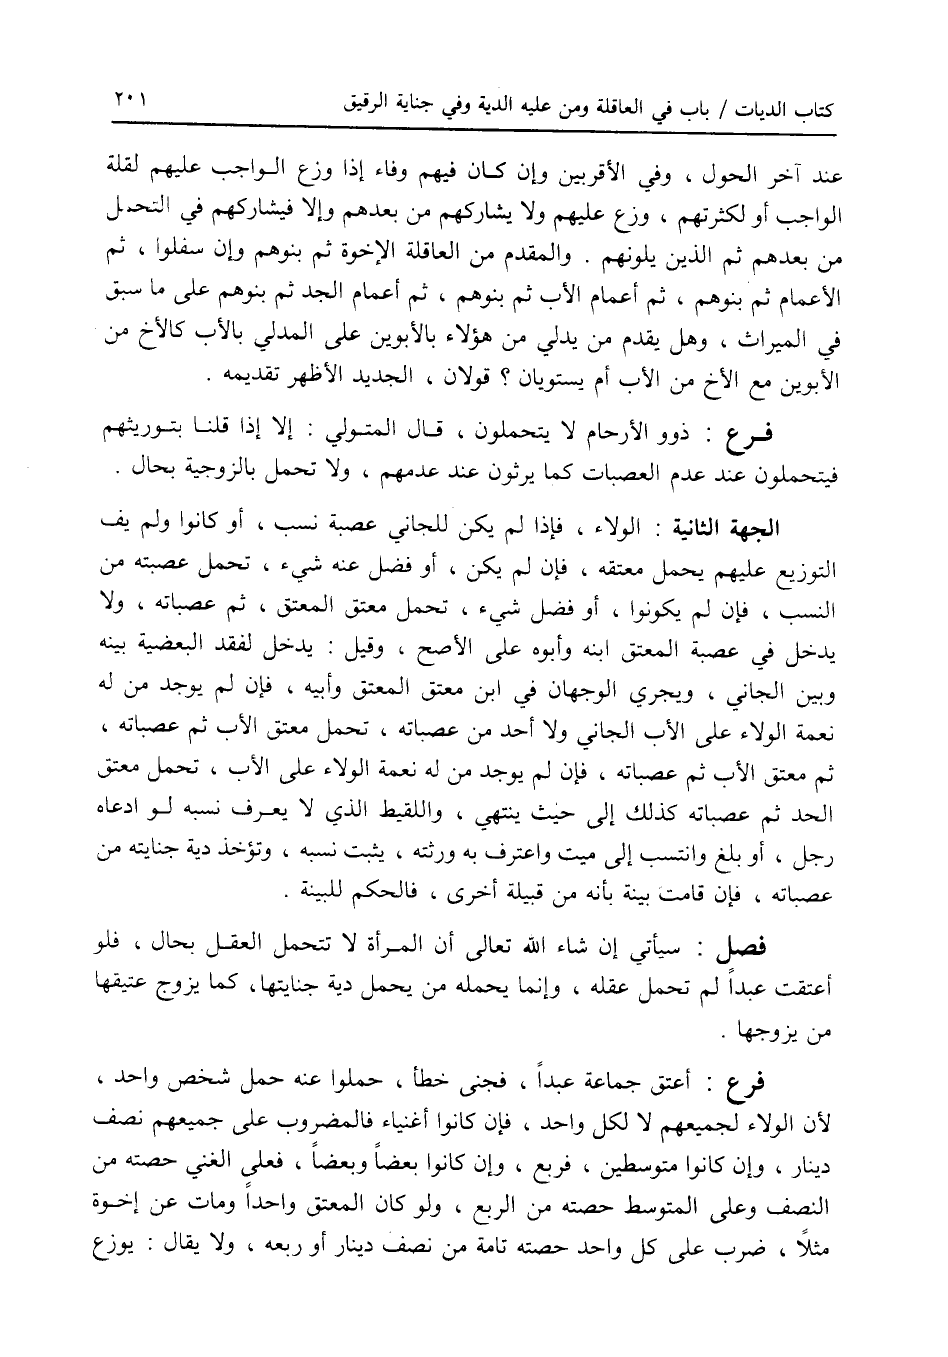 كتاب الديات / باب في العاقلة ومن عليه الدية وفي جناية الرقيق ٢٠١
عند آخر الحول ، وفي الأقربين وإن كان فيهم وفاء إذا وزع الواجب عليهم لقلة
الواجب أو لكثرتهم ، وزع عليهم ولا يشاركهم من بعدهم وإلا فيشاركهم في التحمل
من بعدهم ثم الذين يلونهم . والمقدم من العاقلة الإخوة ثم بنوهم وإن سفلوا ، ثم
الأعمام ثم بنوهم ، ثم أعمام الأب ثم بنوهم ، ثم أعمام الجد ثم بنوهم على ما سبق
في الميراث ، وهل يقدم من يدلي من هؤلاء بالأبوين على المدلي بالأب كالأخ من
الأبوين مع الأخ من الأب أم يستويان ؟ قولان ، الجديد الأظهر تقديمه .
فرع : ذوو الأرحام لا يتحملون ، قال المتولي : إلا إذا قلنا بتوريثهم
فيتحملون عند عدم العصبات كما يرثون عند عدمهم ، ولا تحمل بالزوجية بحال .
الجهة الثانية : الولاء ، فإذا لم يكن للجاني عصبة نسب ، أو كانوا ولم يف
التوزيع عليهم يحمل معتقه ، فإن لم يكن ، أو فضل عنه شيء ، تحمل عصبته من
النسب ، فإن لم يكونوا ، أو فضل شيء ، تحمل معتق المعتق ، ثم عصباته ، ولا
يدخل في عصبة المعتق ابنه وأبوه على الأصح ، وقيل : يدخل لفقد البعضية بينه
وبين الجاني ، ويجري الوجهان في ابن معتق المعتق وأبيه ، فإن لم يوجد من له
نعمة الولاء على الأب الجاني ولا أحد من عصباته ، تحمل معتق الأب ثم عصباته ،
ثم معتق الأب ثم عصباته ، فإن لم يوجد من له نعمة الولاء على الأب ، تحمل معتق
الحد ثم عصباته كذلك إلى حيث ينتهي ، واللقيط الذي لا يعرف نسبه لو ادعاه
رجل ، أو بلغ وانتسب إلى ميت واعترف به ورثته ، يثبت نسبه ، وتؤخذ دية جنايته من
عصباته ، فإن قامت بينة بأنه من قبيلة أخرى ، فالحكم للبينة .
فصل : سيأتي إن شاء الله تعالى أن المرأة لا تتحمل العقل بحال ، فلو
أعتقت عبداً لم تحمل عقله ، وإنما يحمله من يحمل دية جنايتها، كما يزوج عتيقها
من يزوجها .
فرع : أعتق جماعة عبداً ، فجنى خطأ ، حملوا عنه حمل شخص واحد ،
لأن الولاء لجميعهم لا لكل واحد ، فإن كانوا أغنياء فالمضروب على جميعهم نصف
دينار ، وإن كانوا متوسطين ، فربع ، وإن كانوا بعضاً وبعضاً ، فعلى الغني حصته من
النصف وعلى المتوسط حصته من الربع ، ولو كان المعتق واحداً ومات عن إخوة
مثلاً ، ضرب على كل واحد حصته تامة من نصف دينار أو ربعه ، ولا يقال : يوزع